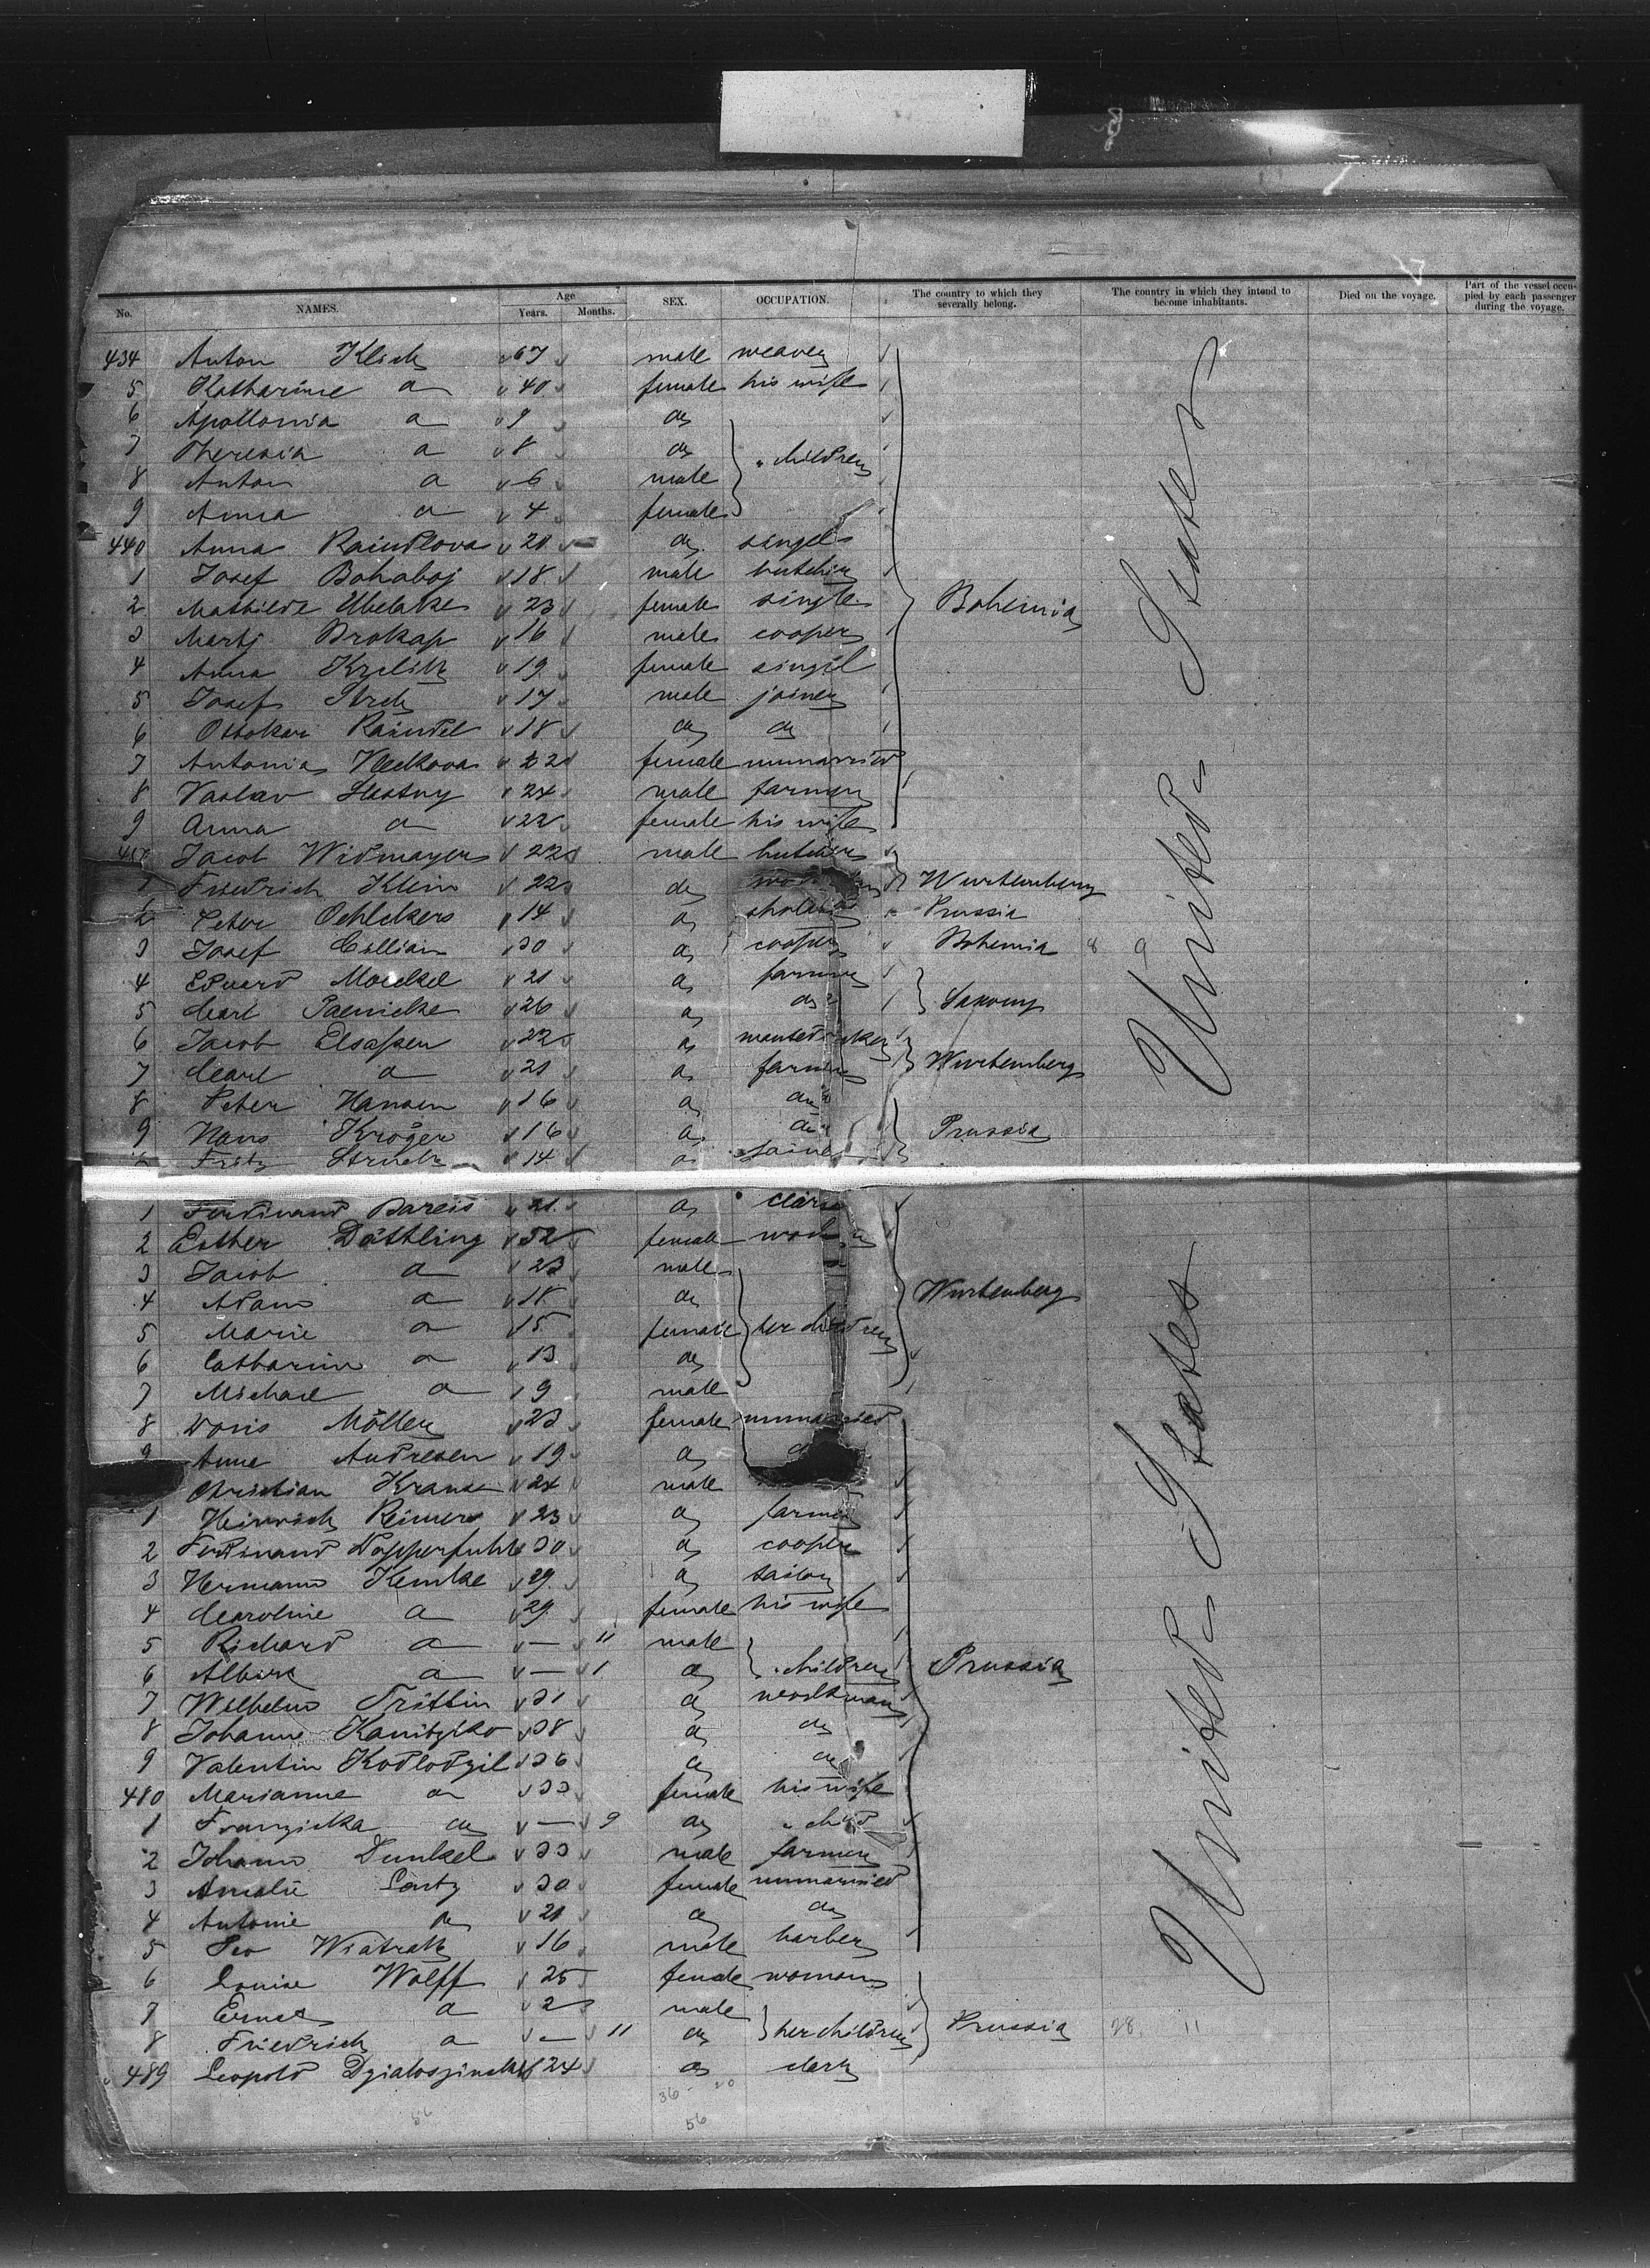 No. NAMES. Age Years. Months. SEX. OCCUPATION. The country to which they severally belong. The country in which they intend to become inhabitants. Died on the voyage. Part of the vessel occupied by each passenger during the voyage.
434 Anton Klich 67 male weaver
5 Katharine a 40 female his wife
6 Apollonia a 9 do
7 Theresia a 8 do children
8 Anton a 6 male
9 Anna a 4 female
440 Anna Raindlova 20 do single
1 Josef Bohaboj 18 male butcher
2 Mathilde 23 female single Bohemia
3 Prokap 16 male cooper
4 Anna 19 female singel
5 Josef 17 male joiner
6 Ottokar Raindel 18 do do
7 Antonia Vleckova 22 female unmarried
8 Vaslav 24 male farmer
9 Anna a 22 female his wife
Jacob Widmayer 22 male butcher
1 Friedrich Klein 22 do Wurtemberg
2 Peter Oehlckers 14 a Prussia
3 Josef 30 a cooper Bohemia 8 9
4 Eduard Moeckel 21 a farmer
5 Carl Paenicke 26 a do Saxony
6 Jacob Elsasser 22 a
7 Carl a 21 a farmer Wurtemberg
8 Peter Hansen 16 a do
9 Hans Kröger 16 a do Prussia
Fritz Struck 14 a
1 Ferdinand Bareis 21 a
2 Esther Däthling 52 female
3 Jacob a 23 male
4 Adam a 18 do Wurtemberg
5 Marie a 15 female her children
6 Catharine a 13 do
7 Michael a 9 male
8 Doris Möller 23 female unmarried
9 Anne Andresen 19 a
Christian Krause 24 male
1 Heinrich Reimers 23 a farmer
2 Ferdinand 30 a cooper
3 Hermann Kemke 29 a tailor
4 Caroline a 29 female his wife
5 Richard a — 11 male
6 a — 1 a children Prussia
7 Wilhelm Trittin 31 a workman
8 Johann 38 a do
9 Valentin 36 a do
480 Marianne a 33 female his wife
1 Franziska do — 9 do child
2 Johann Dunkel 33 male farmer
3 Amalie Lentz 30 female unmarried
4 Antonie do 21 do do
5 Leo Wiatrak 16 male barber
6 Louise Wolff 25 female woman
7 Ernst a 2 male
8 Friedrich a — 11 do her children Prussia 28 11
489 Leopold 24 do clerk
United States
United States
36 20
56
56